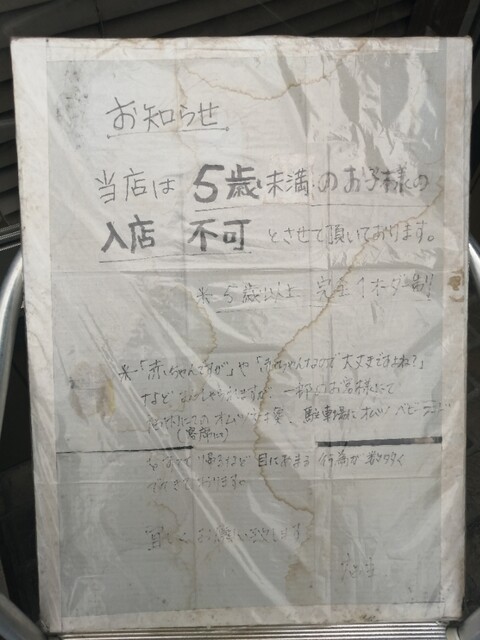 お知らせ
当店は 5歳未満のお子様の
入店 不可 とさせて頂いております。
※5歳以上 完全1オーダー制
※「赤ちゃんですが」や「赤ちゃんなので大丈夫ですよね?」
など 一部のお客様にて
のオムツ 駐車場にオムツ ベビー
(客席)
など 目に余る行為が数多く
ております。
宜しくお願い致します